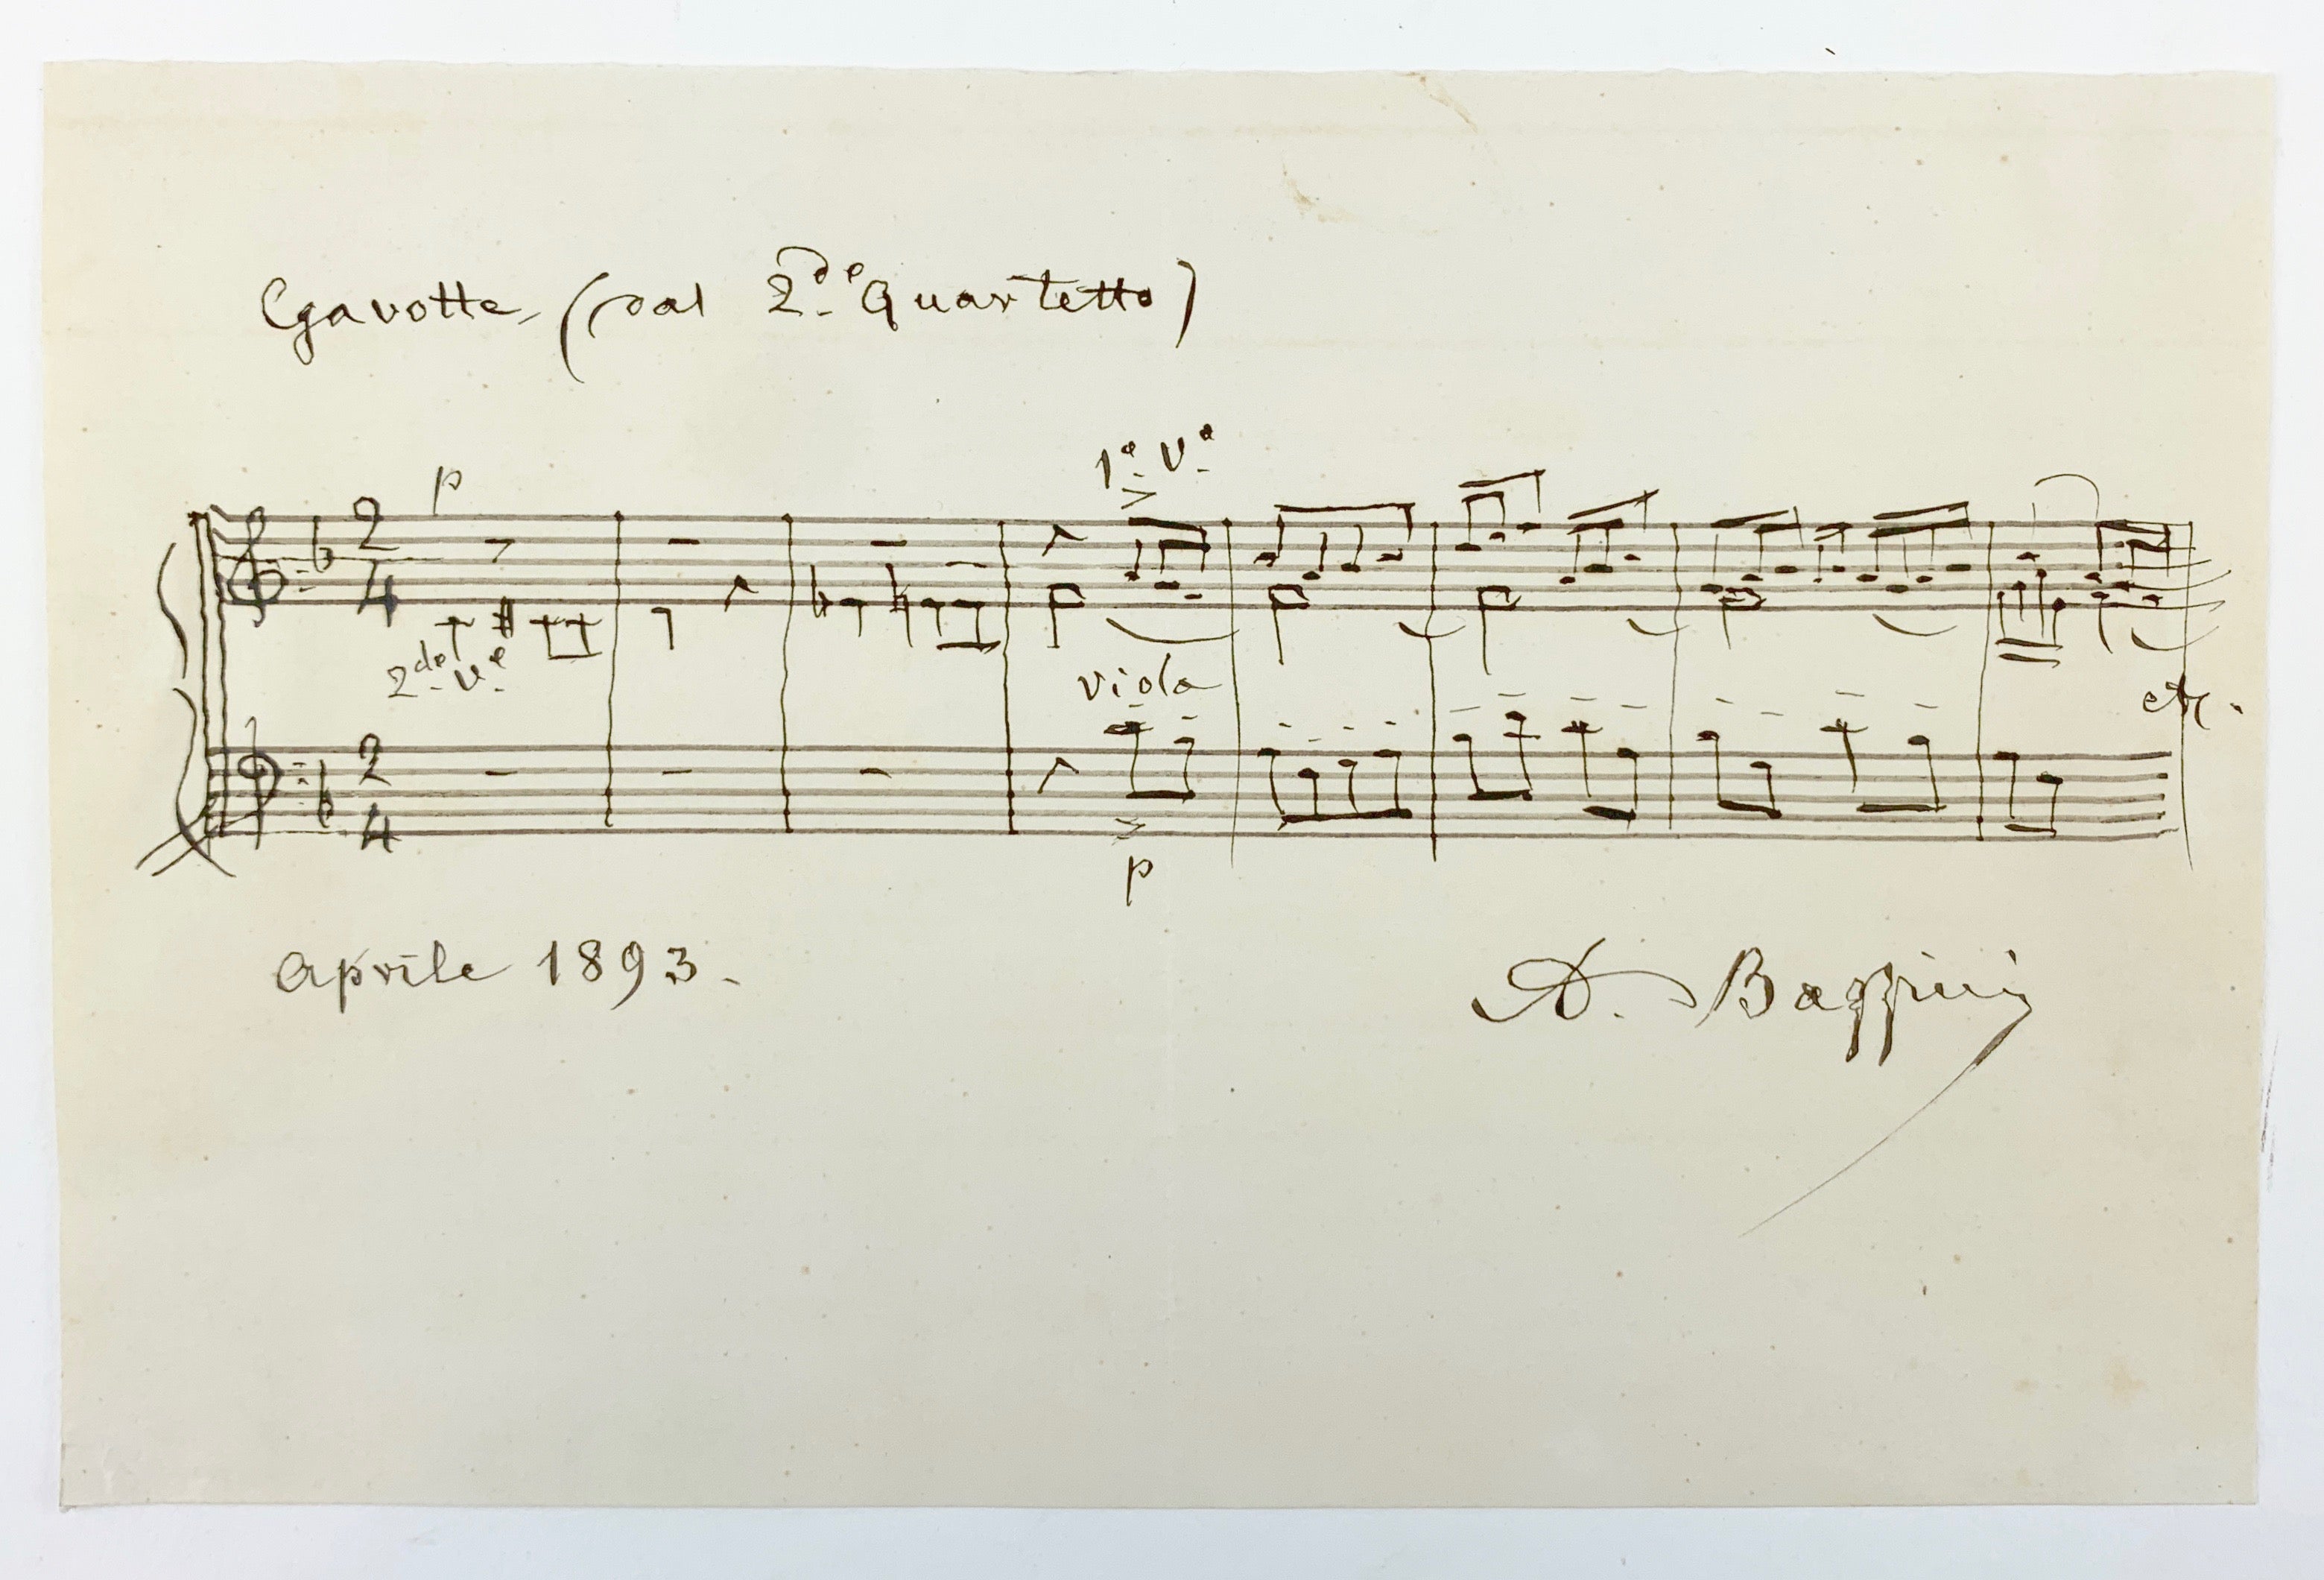 Gavotte (dal 2.de Quartetto)
1.o V.o
p
2
4
2.do V.o
viola
etc.
2
4
p
Aprile 1893.
A. Bazzini